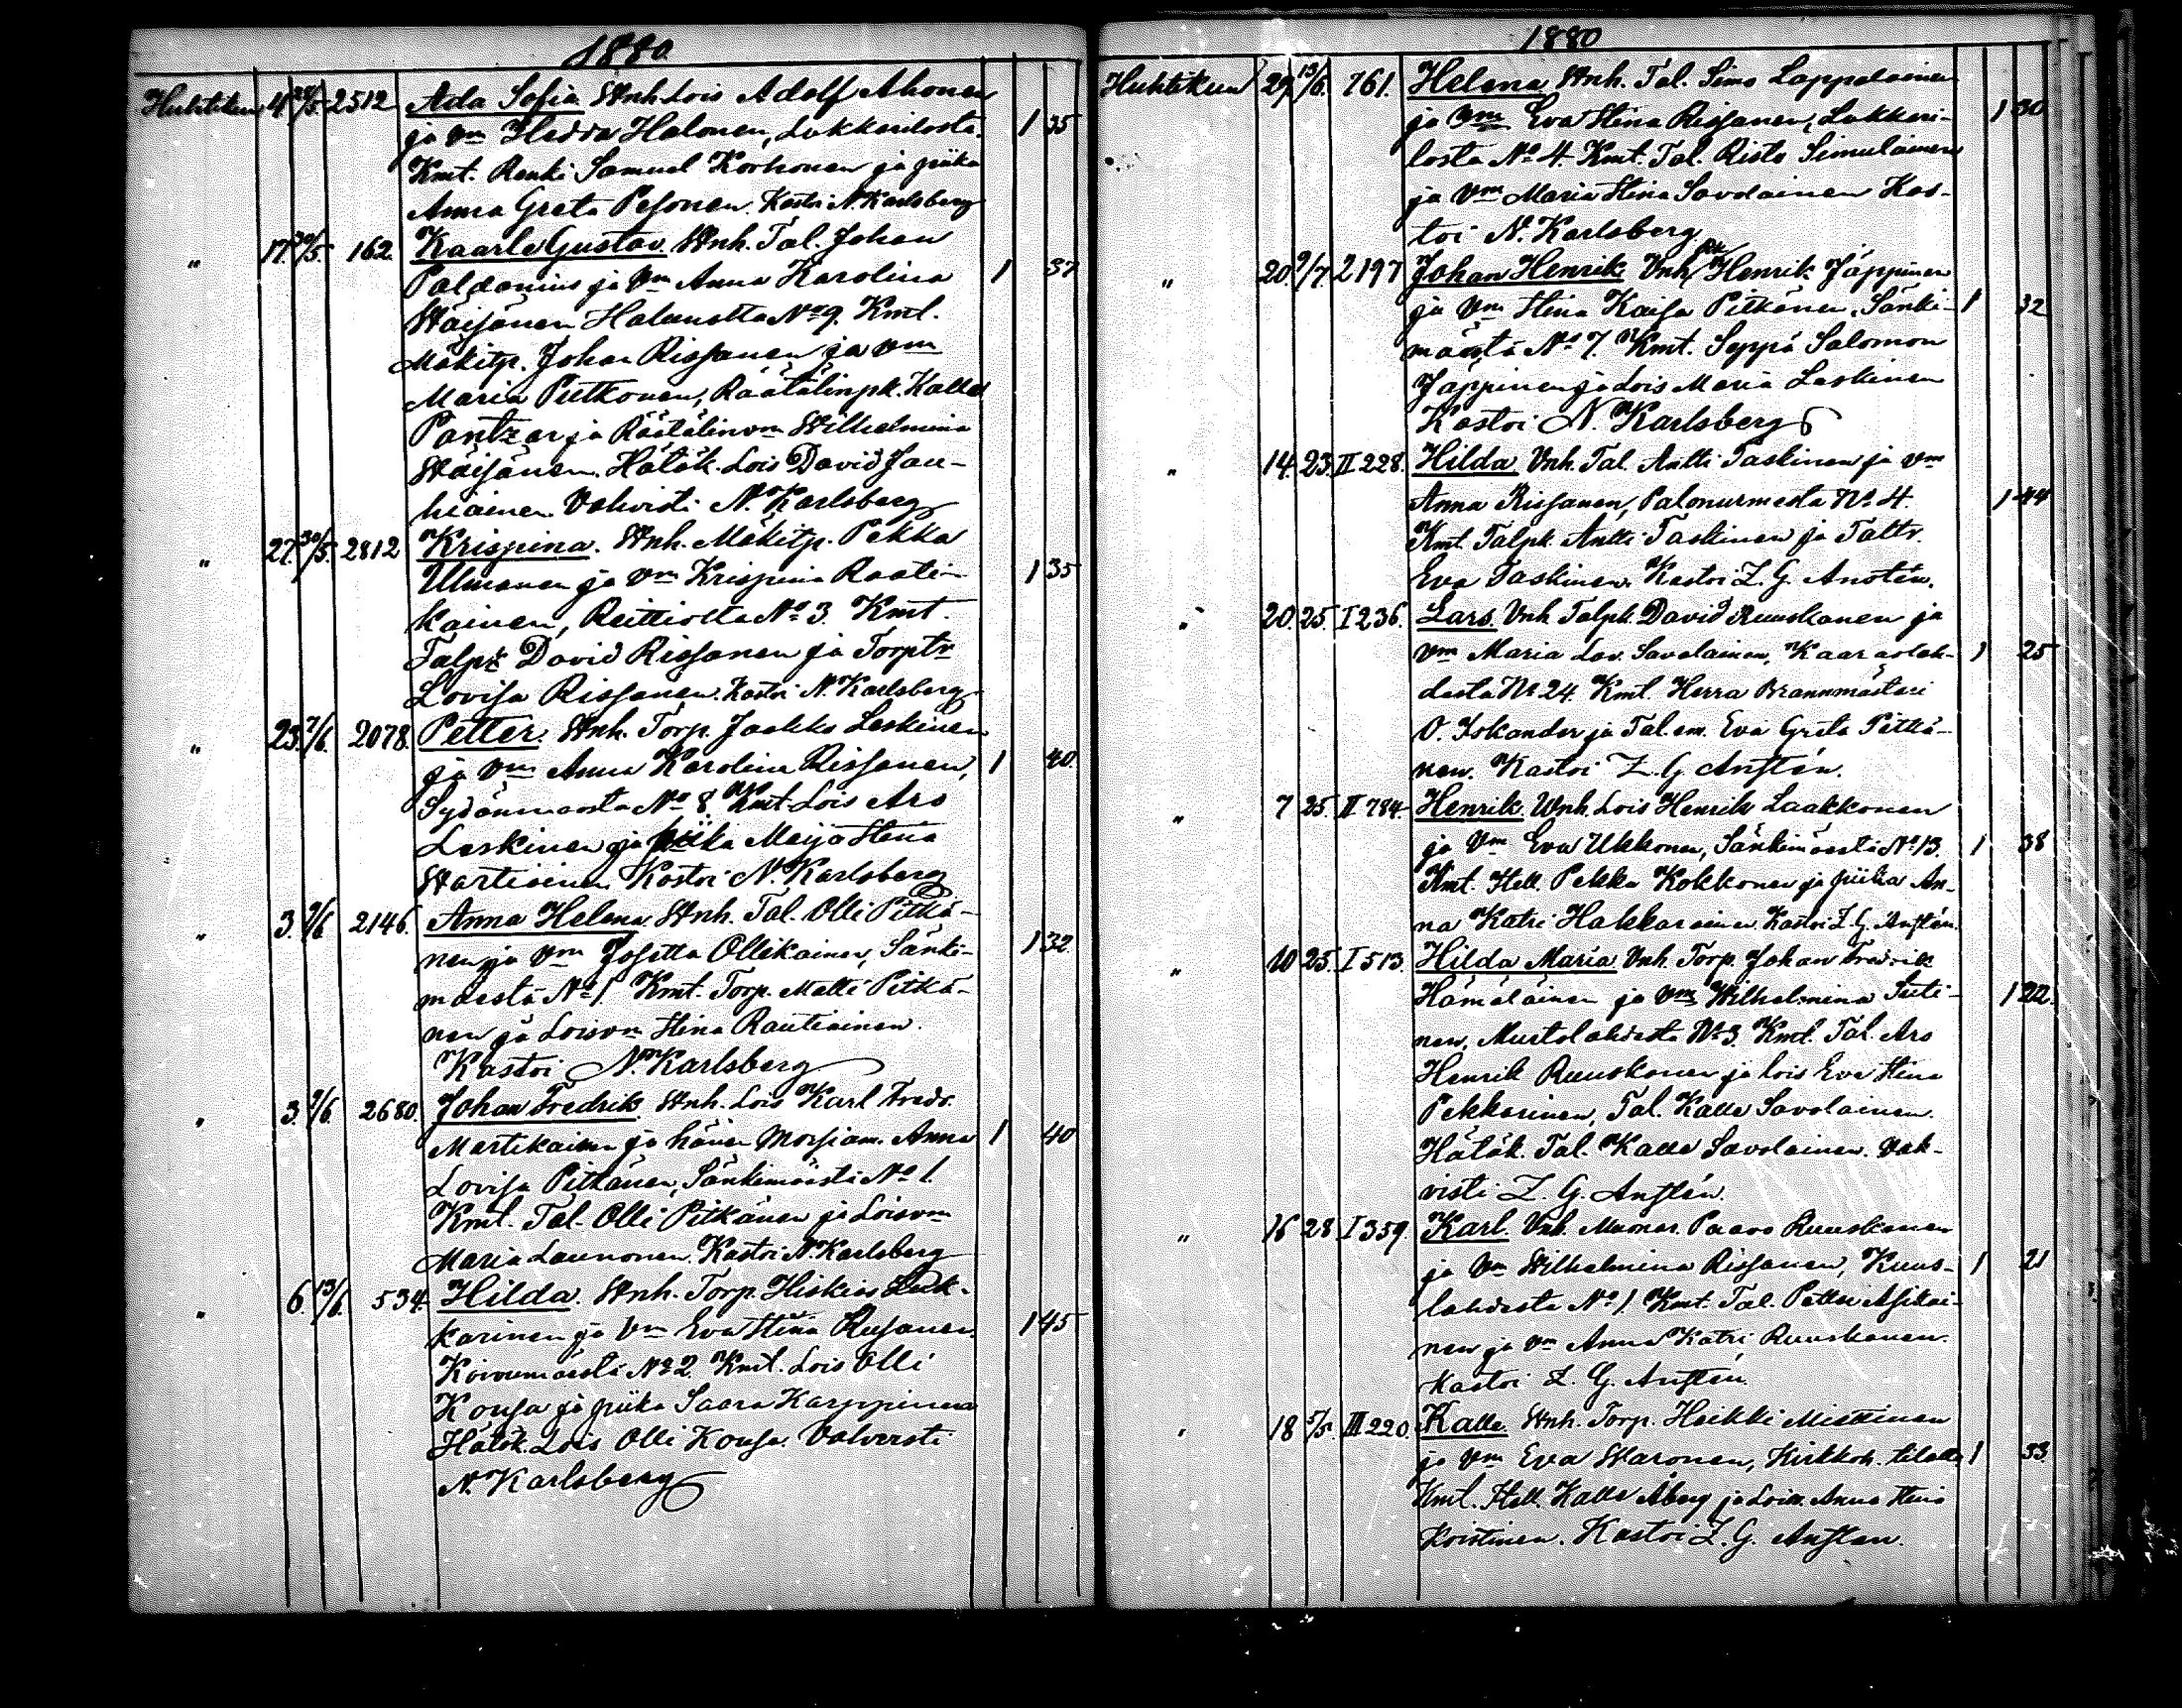 1880.
Huhtikuu 4. 28/5. 2512 Ada Sofia. Wnh. Lois Adolf Ahonen
ja vm Hedda Halonen, Lukkarilasta. 1 35
Kmt. Renki Samuel Korhonen ja piika
Anna Greta Pesonen. Kastoi N. Karlsberg
" 17. 30/5. 162. Kaarle Gustav. Wnh. Tal. Johan
Paldanius ja Vm Anna Karolina 1 37
Wäisänen Halunalta No 9. Kmt.
Mäkitp. Johan Rissanen ja vm
Maria Putkonen, Räätälinpk. Kalle
Pantzar ja Räätälinvm Wilhelmina
Wäisänen. Hätäk. Lois David Jau-
hiainen Vahvisti N. Karlsberg
" 27. 30/5. 2812 Krispina. Wnh. Mäkitp. Pekka
Ulmanen ja vm Krispina Raati- 1 35
kainen, Reittiolta No 3. Kmt.
Talpk David Rissanen ja Torptr
Lovisa Rissanen. Kastoi N. Karlsberg
" 23. 7/6. 2078. Petter. Wnh. Torp. Jaakko Leskinen
ja vm Anna Karolina Rissanen, 1 40
Sydänmaasta No 8. Kmt. Lois Aro
Leskinen ja piika Meija Stena
Wartiainen Kastoi N. Karlsberg
" 3. 9/6 2146. Anna Helena Wnh. Tal. Olli Pitkä-
nen ja vm Josetta Ollikainen, Sänki- 1 32.
mäestä No 1. Kmt. Torp. Matti Pitkä-
nen ja Loisvm Stina Rautiainen.
Kastoi N. Karlsberg
" 3. 9/6 2680. Johan Fredrik Wnh. Lois Karl Fredr.
Martikainen ja hänen Morsiam. Anna 1 40
Lovisa Pitkänen, Sänkimäästä No 1.
Kmt. Tal. Olli Pitkänen ja Loisvm
Maria Launonen. Kastoi N. Karlsberg
" 6. 13/6. 534. Hilda. Wnh. Torp. Hiskias Luk-
karinen ja Vm Eva Stina Rusanen. 1 45
Koivumäestä No 2. Kmt. Lois Olli
Kousa ja piika Saara Karppinen
Hätäk. Lois Olli Kousa. Vahvisti
N. Karlsberg
1880
Huhtikuu 29. 13/6. 761. Helena Wnh. Tal. Simo Lappalainen
ja Vm Eva Stina Rissanen, Lukkari- 1 30
lasta No 4. Kmt. Tal. Risto Simulainen
ja Vm Maria Stina Savolainen Kas-
toi N. Karlsberg
" 20. 9/7. 2197 Johan Henrik Vnh. pk Henrik Jäppinen
ja vm Stina Kaisa Pitkänen, Sänki- 1 32
määstä No 7. Kmt. Seppä Salomon
Jäppinen ja Lois Maria Laskinen
Kastoi N. Karlsberg
" 14. 23. II 228. Hilda Vnh. Tal. Antti Taskinen ja vm
Anna Rissanen, Palonurmesta No 4. 1 44
Kmt. Talpk. Antti Taskinen ja Taltr.
Eva Taskinen. Kastoi Z. G. Anstén.
" 20. 25. I 236. Lars. Vnh. Talpk. David Ruuskanen ja
vm Maria Lov. Savolainen, Kaaraslah- 1 25
desta No 24. Kmt. Herra Brannmästari
O. Iskander ja Tal. em. Eva Greta Pitkä-
nen. Kastoi Z. G. Anstén.
" 7 25. II 784. Henrik. Wnh. Lois Henrik Laakkonen
ja Vm Eva Ukkonen, Sänkimäästä No 13. 1 38
Kmt. Itell. Pekka Kokkonen ja piika An-
na Katri Hakkarainen. Kastoi Z. G. Anstén.
" 10 25. I 513. Hilda Maria. Vnh. Torp. Johan Fredrik
Hämäläinen ja Vm Wilhelmina Suti- 1 22.
nen, Mustolahdesta No 3. Kmt. Tal. Aro
Henrik Ruuskanen ja lois Eva Stina
Pekkarinen, Tal. Kalle Savolainen.
Hätäk. Tal. Kalle Savolainen. Vah-
visti Z. G. Anstén.
" 16 28 I 359. Karl. Vnh. Muonar. Paavo Ruuskanen
ja Vm Wilhelmina Rissanen, Kuus- 1 21
lahdesta No 1. Kmt. Tal. Petter Asikai-
nen ja vm Anna Katri Ruuskanen.
Kastoi Z. G. Anstén.
" 18 5/5. III 220. Kalle. Wnh. Torp. Heikki Miettinen
ja Vm Eva Waronen, Kirkkoh. tilalta 1 33.
Kmt. Itell. Kalle Åberg ja Loisn. Anna Stina
Koistinen. Kastoi Z. G. Anstén.